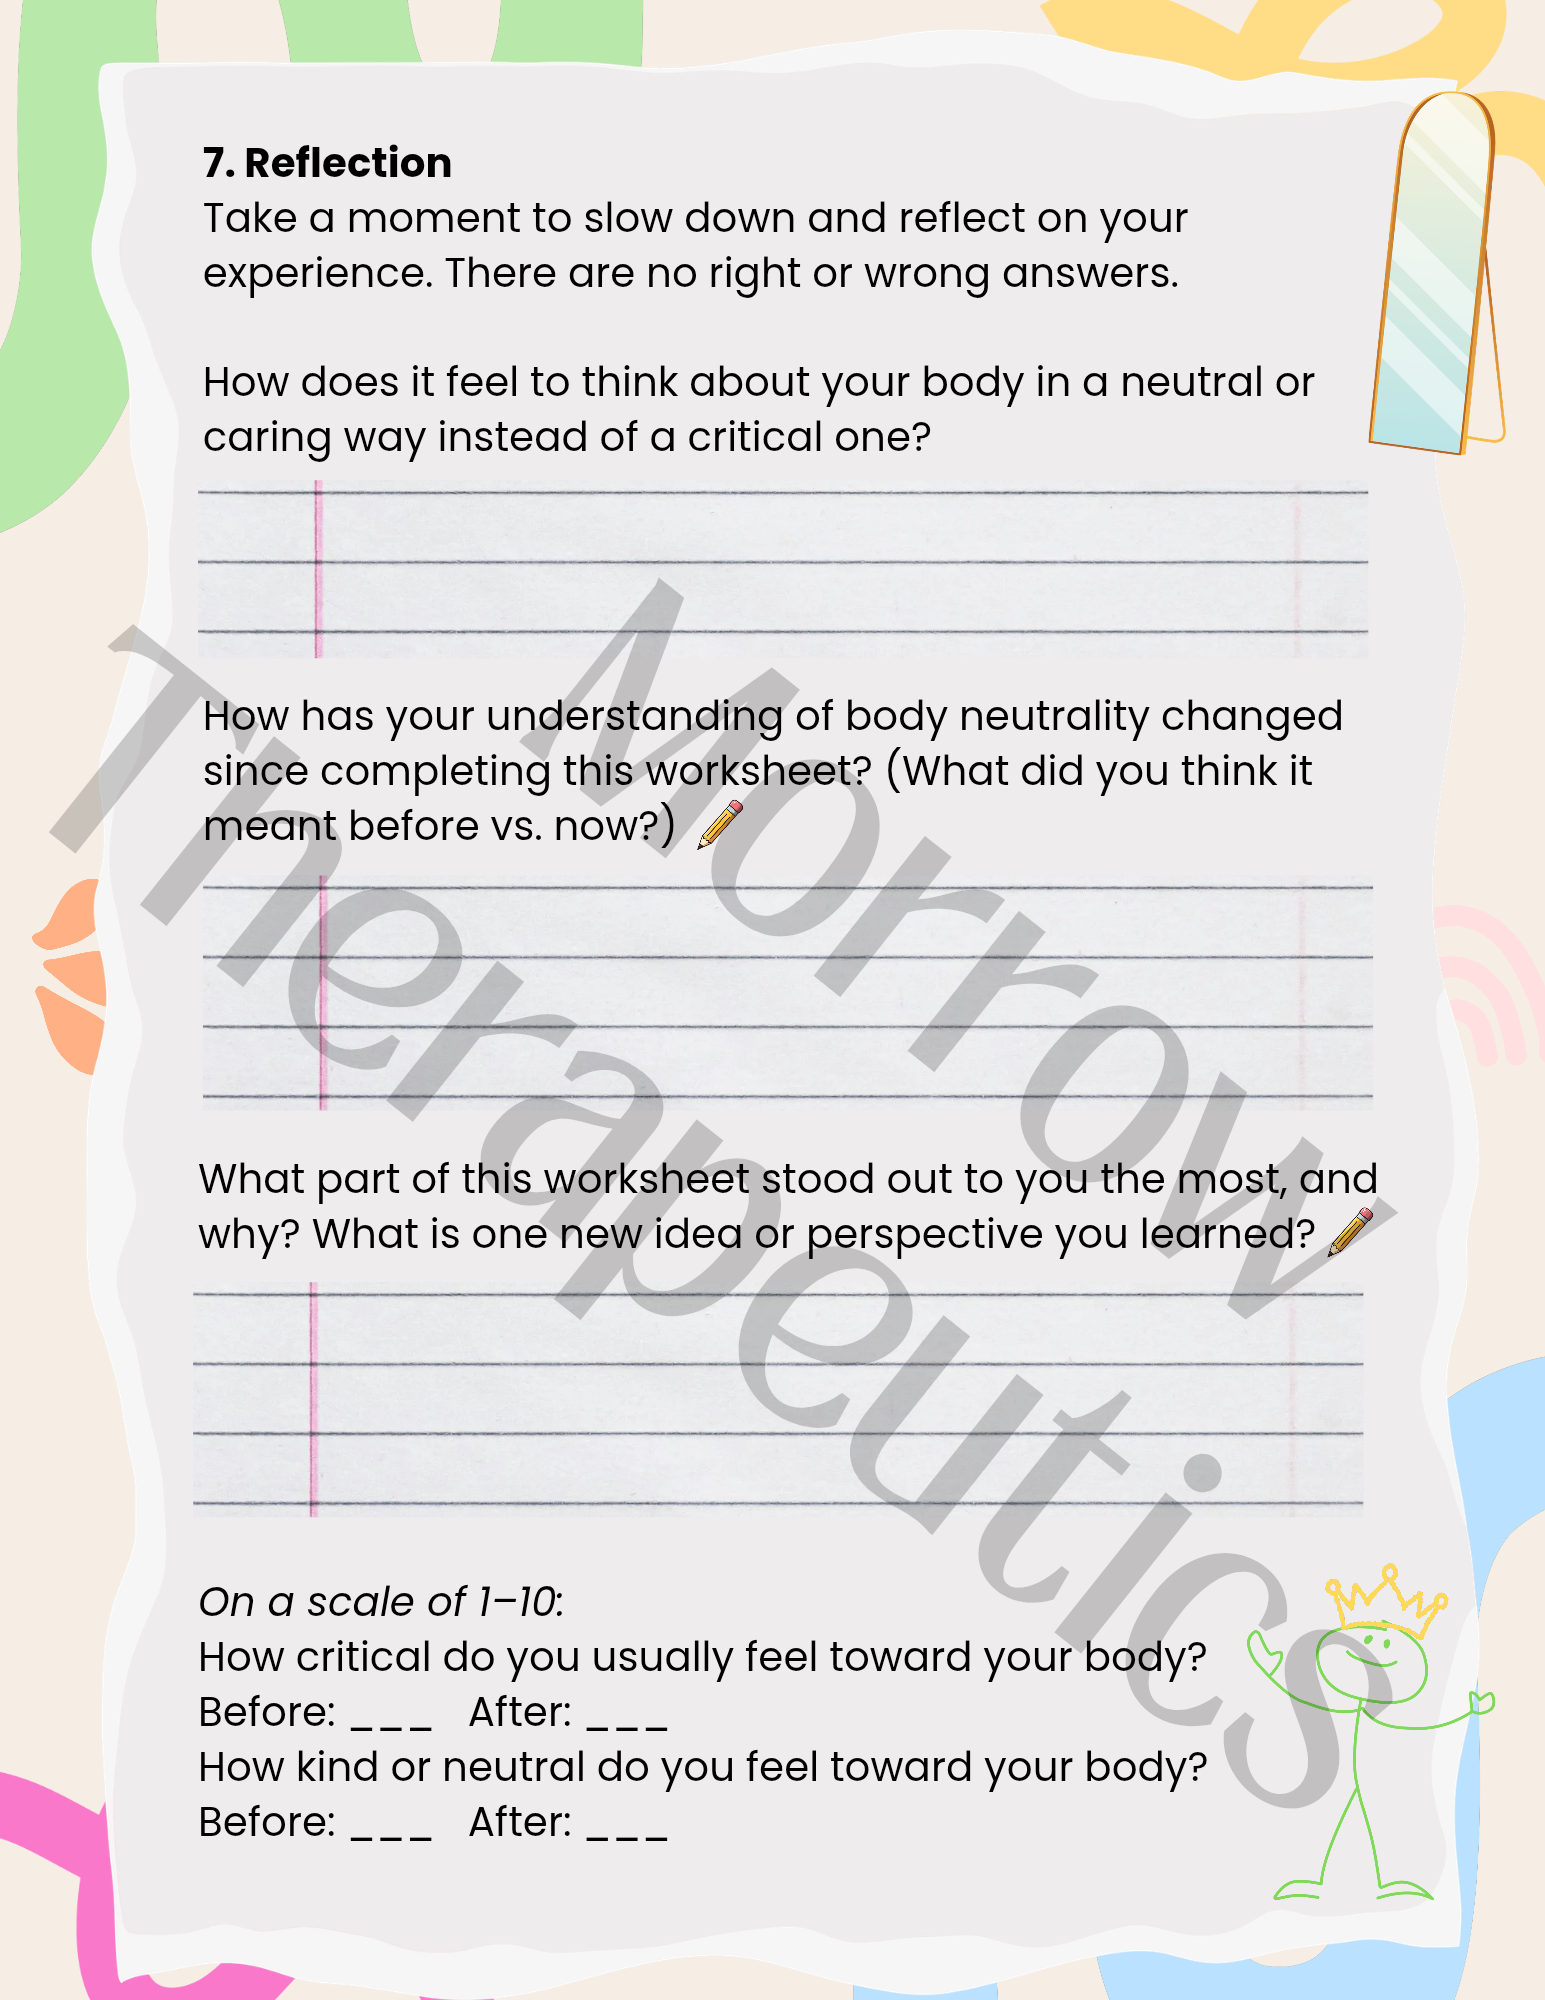 7. Reflection
Take a moment to slow down and reflect on your
experience. There are no right or wrong answers.
How does it feel to think about your body in a neutral or
caring way instead of a critical one?
How has your understanding of body neutrality changed
since completing this worksheet? (What did you think it
meant before vs. now?)
What part of this worksheet stood out to you the most, and
why? What is one new idea or perspective you learned?
On a scale of 1–10:
How critical do you usually feel toward your body?
Before: _ _ _ After: _ _ _
How kind or neutral do you feel toward your body?
Before: _ _ _ After: _ _ _
Morrow
Therapeutics